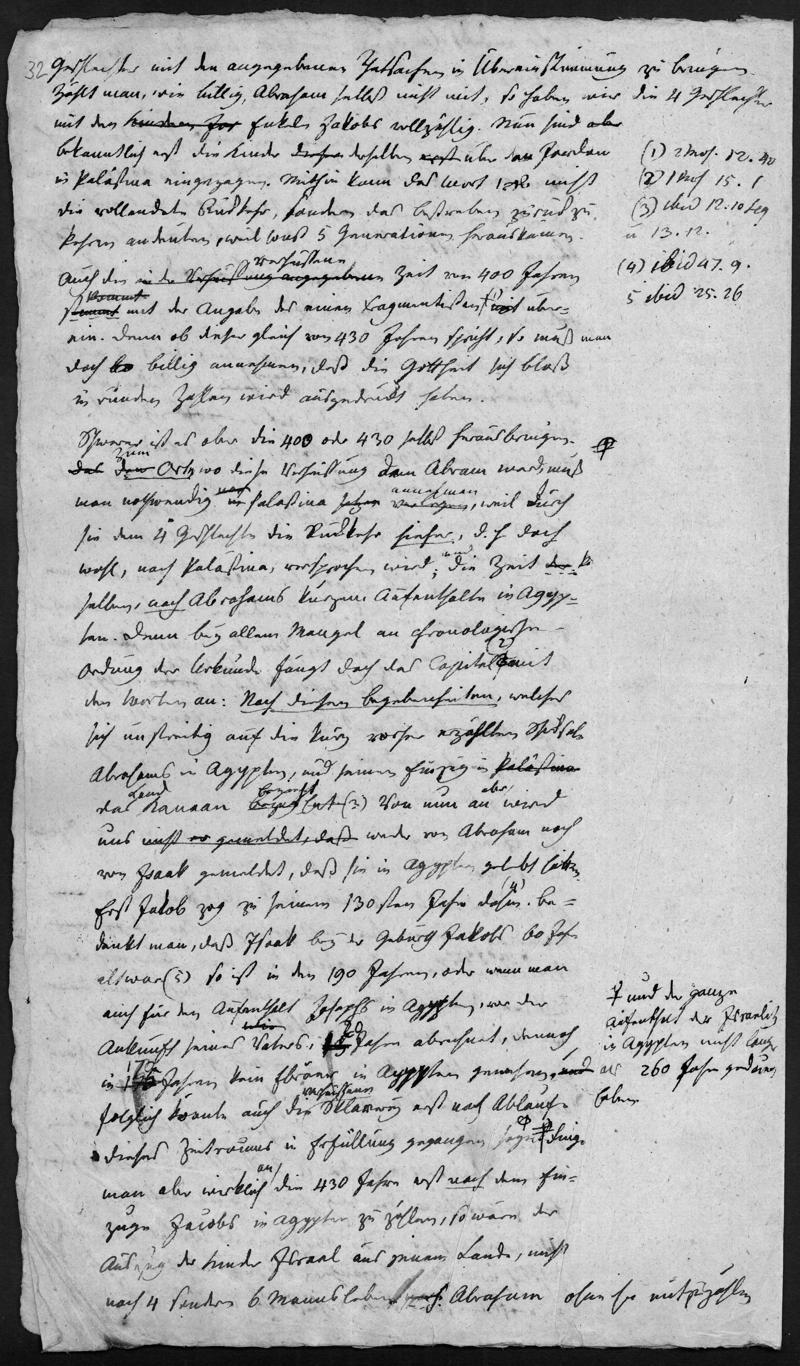 32 Geschlechter mit den angegebenen Thatsachen in Übereinstimmung zu bringen.
Zählt man, wie billig, Abraham selbst nicht mit, so haben wir die 4 Geschlechter
mit den Enkeln Jakobs vollzählig. Nun sind aber
bekanntlich erst die Kinder derselben über den Jordan
in Palästina eingezogen. Mithin kann das Wort nicht
die vollendete Rückkehr, sondern das bestreben zurück zu
kehren andeuten, weil sonst 5 Generationen herauskämen.
Auch die verheissene Zeit von 400 Jahren
kommt mit der Angabe des einen Fragmentisten (1) über-
ein. Denn ob dieser gleich von 430 Jahren spricht, so muß man
doch billig annehmen, daß die Gottheit sich bloß
in runden Zahlen wird ausgedrückt haben.
Schwerer ist es aber die 400 oder 430 selbst herausbringen.
Zum Ort, wo diese Verheissung dem Abram ward, muß
man nothwendig Palästina annehmen, weil durch
sie dem 4 Geschlechte die Rückkehr hieher, d. h. doch
wohl, nach Palästina, versprochen wird; die Zeit
selben, nach Abrahams kurzem Aufenthalte in Agyp-
ten. Denn bey allem Mangel an chronologischer
Ordnung der Urkunde fängt doch das Capitel (2) mit
den Worten an: Nach diesen Begebenheiten, welches
sich unstreitig auf die kurz vorher erzählten Schicksale
Abrahams in Agypten, und seinen Einzug in
das Land Kanaan bezieht (3) Von nun an aber wird
uns weder von Abraham noch
von Isaak gemeldet, daß sie in Agypten gelebt hätten.
Erst Jakob zog in seinem 130sten Jahre dahin (4). Be-
denkt man, daß Isaak bey der Geburt Jakobs 60 Jahr
alt war (5) so ist in den 190 Jahren, oder wenn man
auch für den Aufenthalt Josephs in Agypten, vor der
Ankunft seines Vaters, Jahre abrechnet, dennoch
in Jahren kein Ebräer in Agypten gewesen,
folglich konnte auch die verheissene Sklaverey erst nach Ablauf
dieses Zeitraums in Erfüllung gegangen seyn. Fing
man aber wirklich an die 430 Jahre erst nach dem Ein-
zuge Jacobs in Agypten zu zählen, so wäre der
Auszug der Kinder Israel aus jenem Lande, nicht
nach 4 sondern 6 Mannsleben Abraham ohne ihn mitzuzählen
(1) 2 Mos. 12. 40
(2) 1 Mos 15. 1
(3) ibid 12. 10 seq
u 13. 12.
(4) ibid 47. 9.
5 ibid 25. 26
und der ganze
Aufenthalt der Israeliten
in Agypten nicht länger
als 260 Jahre gedauert
haben